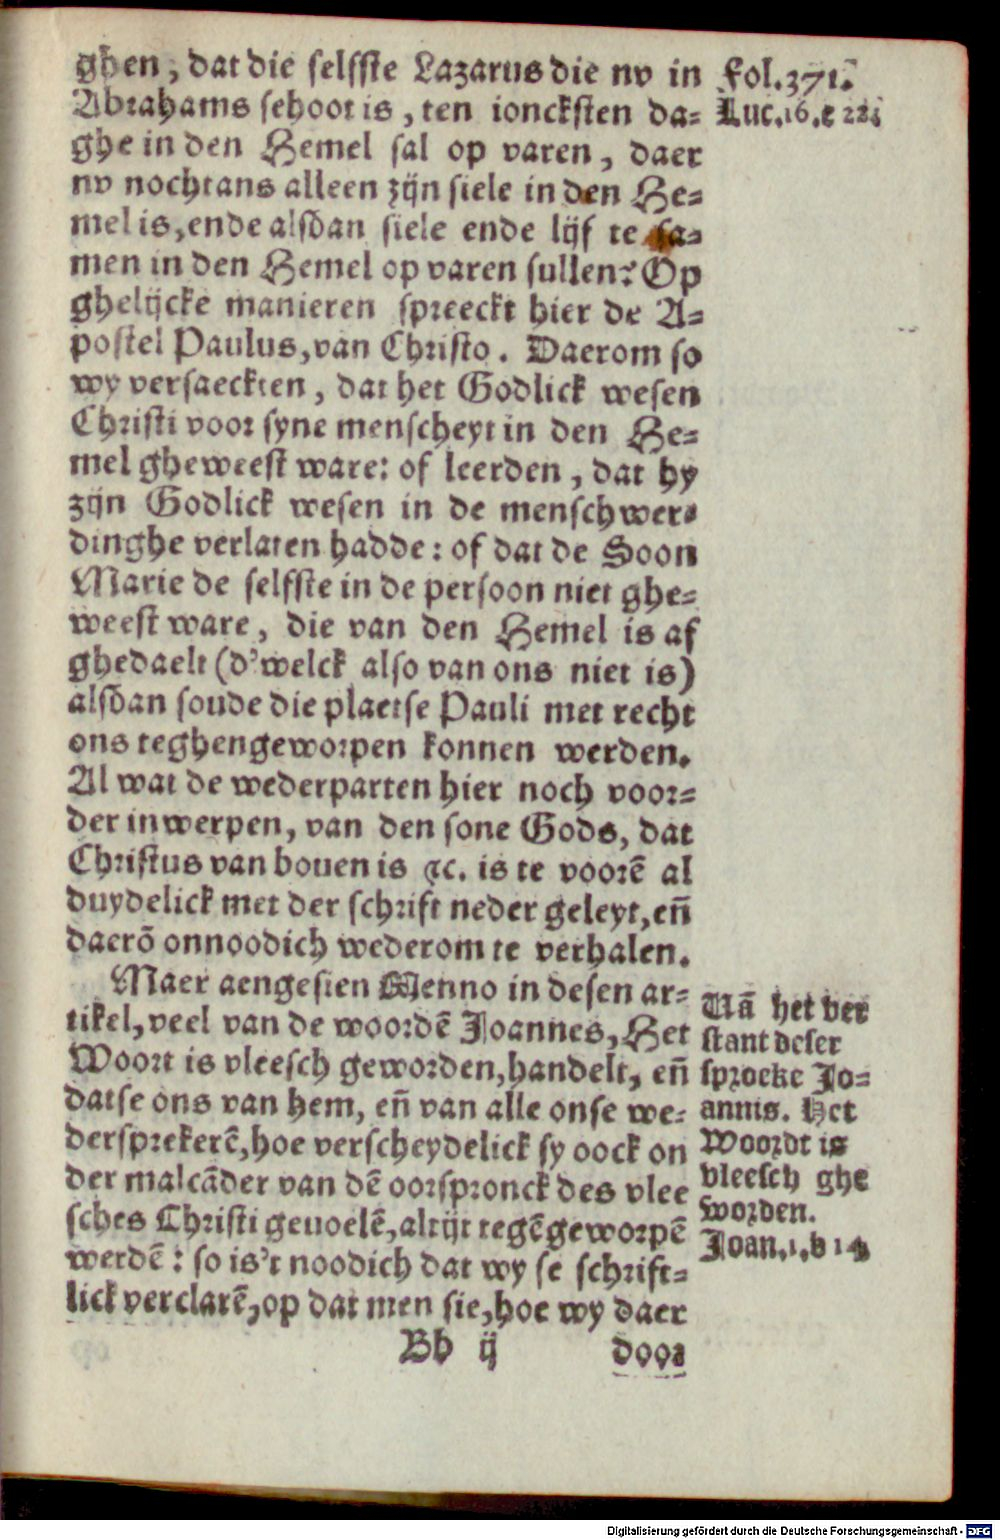 ghen, dat die selffste Lazarus die nv in
Abrahams schoot is, ten ioncksten da=
ghe in den Hemel sal op varen, daer
nv nochtans alleen zijn siele in den He=
mel is, ende alsdan siele ende lijf te sa=
men in den Hemel op varen sullen? Op
ghelijcke manieren spreeckt hier de A=
postel Paulus, van Christo. Daerom so
wy versaeckten, dat het Godlick wesen
Christi voor syne menscheyt in den He=
mel gheweest ware: of leerden, dat hy
zijn Godlick wesen in de menschwer=
dinghe verlaten hadde: of dat de Soon
Marie de selffste in de persoon niet ghe=
weest ware, die van den Hemel is af
ghedaelt (d'welck also van ons niet is)
alsdan soude die plaetse Pauli met recht
ons teghengeworpen konnen werden.
Al wat de wederparten hier noch voor=
der inwerpen, van den sone Gods, dat
Christus van bouen is ꝛc. is te voorē al
duydelick met der schrift neder geleyt, eñ
daerō onnoodich wederom te verhalen.
Maer aengesien Menno in desen ar=
tikel, veel van de woordē Joannes, Het
Woort is vleesch geworden, handelt, eñ
datse ons van hem, eñ van alle onse we=
dersprekerē, hoe verscheydelick sy oock on
der malcāder van dē oorspronck des vlee
sches Christi geuoelē, altijt tegēgeworpē
werdē: so is't noodich dat wy se schrift=
lick verclarē, op dat men sie, hoe wy daer
Bb ij door
Fol. 371.
Luc. 16. c 22.
Uā het ver
stant deser
sproeke Jo=
annis. Het
Woordt is
vleesch ghe
worden.
Joan. 1. b 14
Digitalisierung gefördert durch die Deutsche Forschungsgemeinschaft - DFG